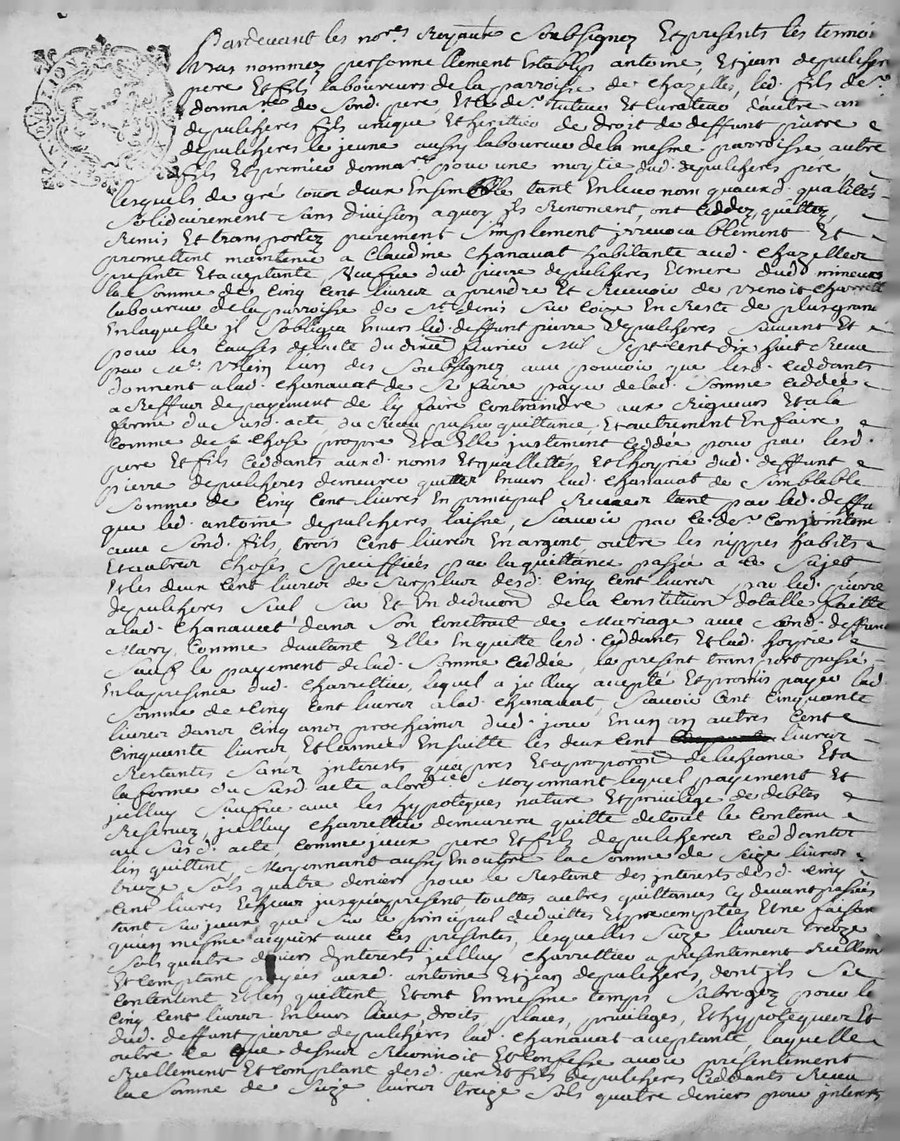 Pardevant les no.res Royaux Soubsignez Et presents les temoi
bas nommez personnellement Establys antoine, Et jean depulchere
pere Et fils laboureurs de la parroisse de Chazelles, led. fils de
donnare. de Sond. pere Et led. Sr. tuteur Et Curateur dautre an
depulcheres fils unique Et heritier de droit de deffunt pierre
depulcheres le jeune aussy laboureur de la mesme parroisse autre
fils Et premier donnare. pour une moytie dud. depulcheres pere,
lesquels de gré tous deux Ensemble tant En leur nom quaux d. qualites
Solidairement Sans division a quoy ils Renoncent, ont Ceddez, quittez,
Remis Et transportez purement Simplement jrrevocablement Et
promettent maintenir a Claudine Chanavat habitante aud. Chazelles
presente Et aceptante, Veufve dud. pierre depulcheres Et mere dud. mineur
la Somme de Cinq Cent livres a prendre Et Recevoir de Benoit Charretti
laboureur de la parroisse de St. denis Sur Coize En Reste de plus grand
En laquelle jl Sobligea Envers led. deffunt pierre depulcheres Suivant Et
pour les Causes de lacte du dixie. fevrier Mil Sept Cent dix huit Receu
par Me. lun des Soubsignez avec pouvoir que lesd. Ceddants
donnent a lad. Chanavat de Se faire payer de lad. Somme ceddée
a Reffus de payement de ly faire Contraindre aux Rigueurs Et a la
forme du Susd. acte, du Receu passer quittance Et autrement En faire
Comme de Sa Chose propre Et a Elle justement Ceddée pour par lesd.
pere Et fils Ceddants ausd. noms Et quallittés Et lhoyrie dud. deffunt
pierre depulcheres demeurer quittes Envers lad. Chanavat de Semblable
Somme de Cinq Cent livres En principal Receue tant par led. deffu
que led. antoine depulcheres laisné, Scavoir par Ce dr. Conjointem
avec Sond. fils, trois Cent livres En argent outre les nippes habits
Et autres Choses Speciffiés par la quittance passée a Ce Sujet
Et les deux Cent livres de Surplus desd. Cinq Cent livres par led. pierre
depulcheres Seul Sur Et En deduon. de la Constitution dotalle faitte
a lad. Chanavat dans Son Contrat de Mariage avec Sond. deffunt
Mary, Comme dautant Elle En quitte lesd. Ceddants Et lad. hoyrie
Sauf le payement de lad. Somme Ceddée, le present transport passé
En la presence dud. Charrettier, lequel a jcelluy accepté Et promis payer lad.
Somme de Cinq Cent livres a lad. Chanavat, Scavoir Cent Cinquante
livres dans Cinq ans prochains dud. jour En un an autres Cent
Cinquante livres Et lannée Ensuitte les deux Cent livres
Restantes Sans interests quapres Et a proporon. de lecheance Et a
la forme du Susd. acte Moyennant lequel payement Et
jcelluy Sauf Et avec les hypoteques nature Et privilege de debtes
Reservez, jcelluy Charrettier demeurera quitte de tout le Contenu
au Susd. acte, Comme jceux pere Et fils depulcheres Ceddants
len quittent, Moyennant aussy En outre la Somme de Seize livres
treize Sols quatre deniers pour le Restant des interests desd. Cinq
Cent livres Echeus jusqua present touttes autres quittances Cy devant passées
tant Sur jceux que Sur le principal deduittes Et precomptées Et ne faisan
quun mesme acquit avec Ces presentes, lesquelles Seize livres treize
Sols quatre deniers dinterests jcelluy Charrettier a presentement Reellem
Et Comptant payées auxd. antoine Et jean depulcheres, dont jls Se
Contentent Et len quittent, Et ont En mesme temps Subrogez pour le
Cinq Cent livres En leurs lieux, droits, places, privileges, Et hypoteques Et
dud. deffunt pierre depulcheres lad. Chanavat aceptante, laquelle
outre Ce que dessus Reconnoit Et Confesse avoir presentement
Reellement Et Comptant desd. pere Et fils depulcheres Ceddants Receu
la Somme de Seize livres treize Sols quatre deniers pour jnterests